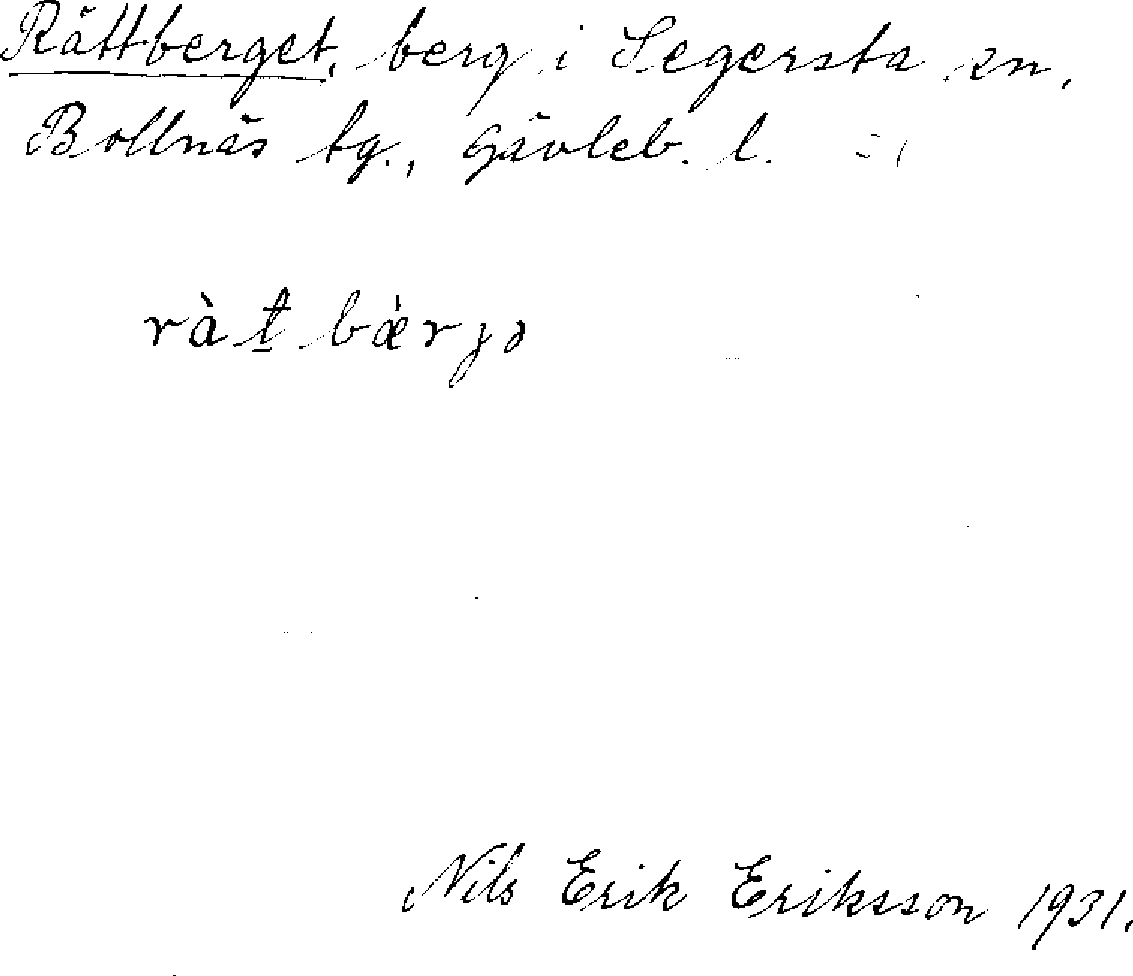 Rättberget, berg i Segersta sn,
Bollnäs tg., Gävleb. l.
ràt bǽrjə
Nils Erik Eriksson 1931.